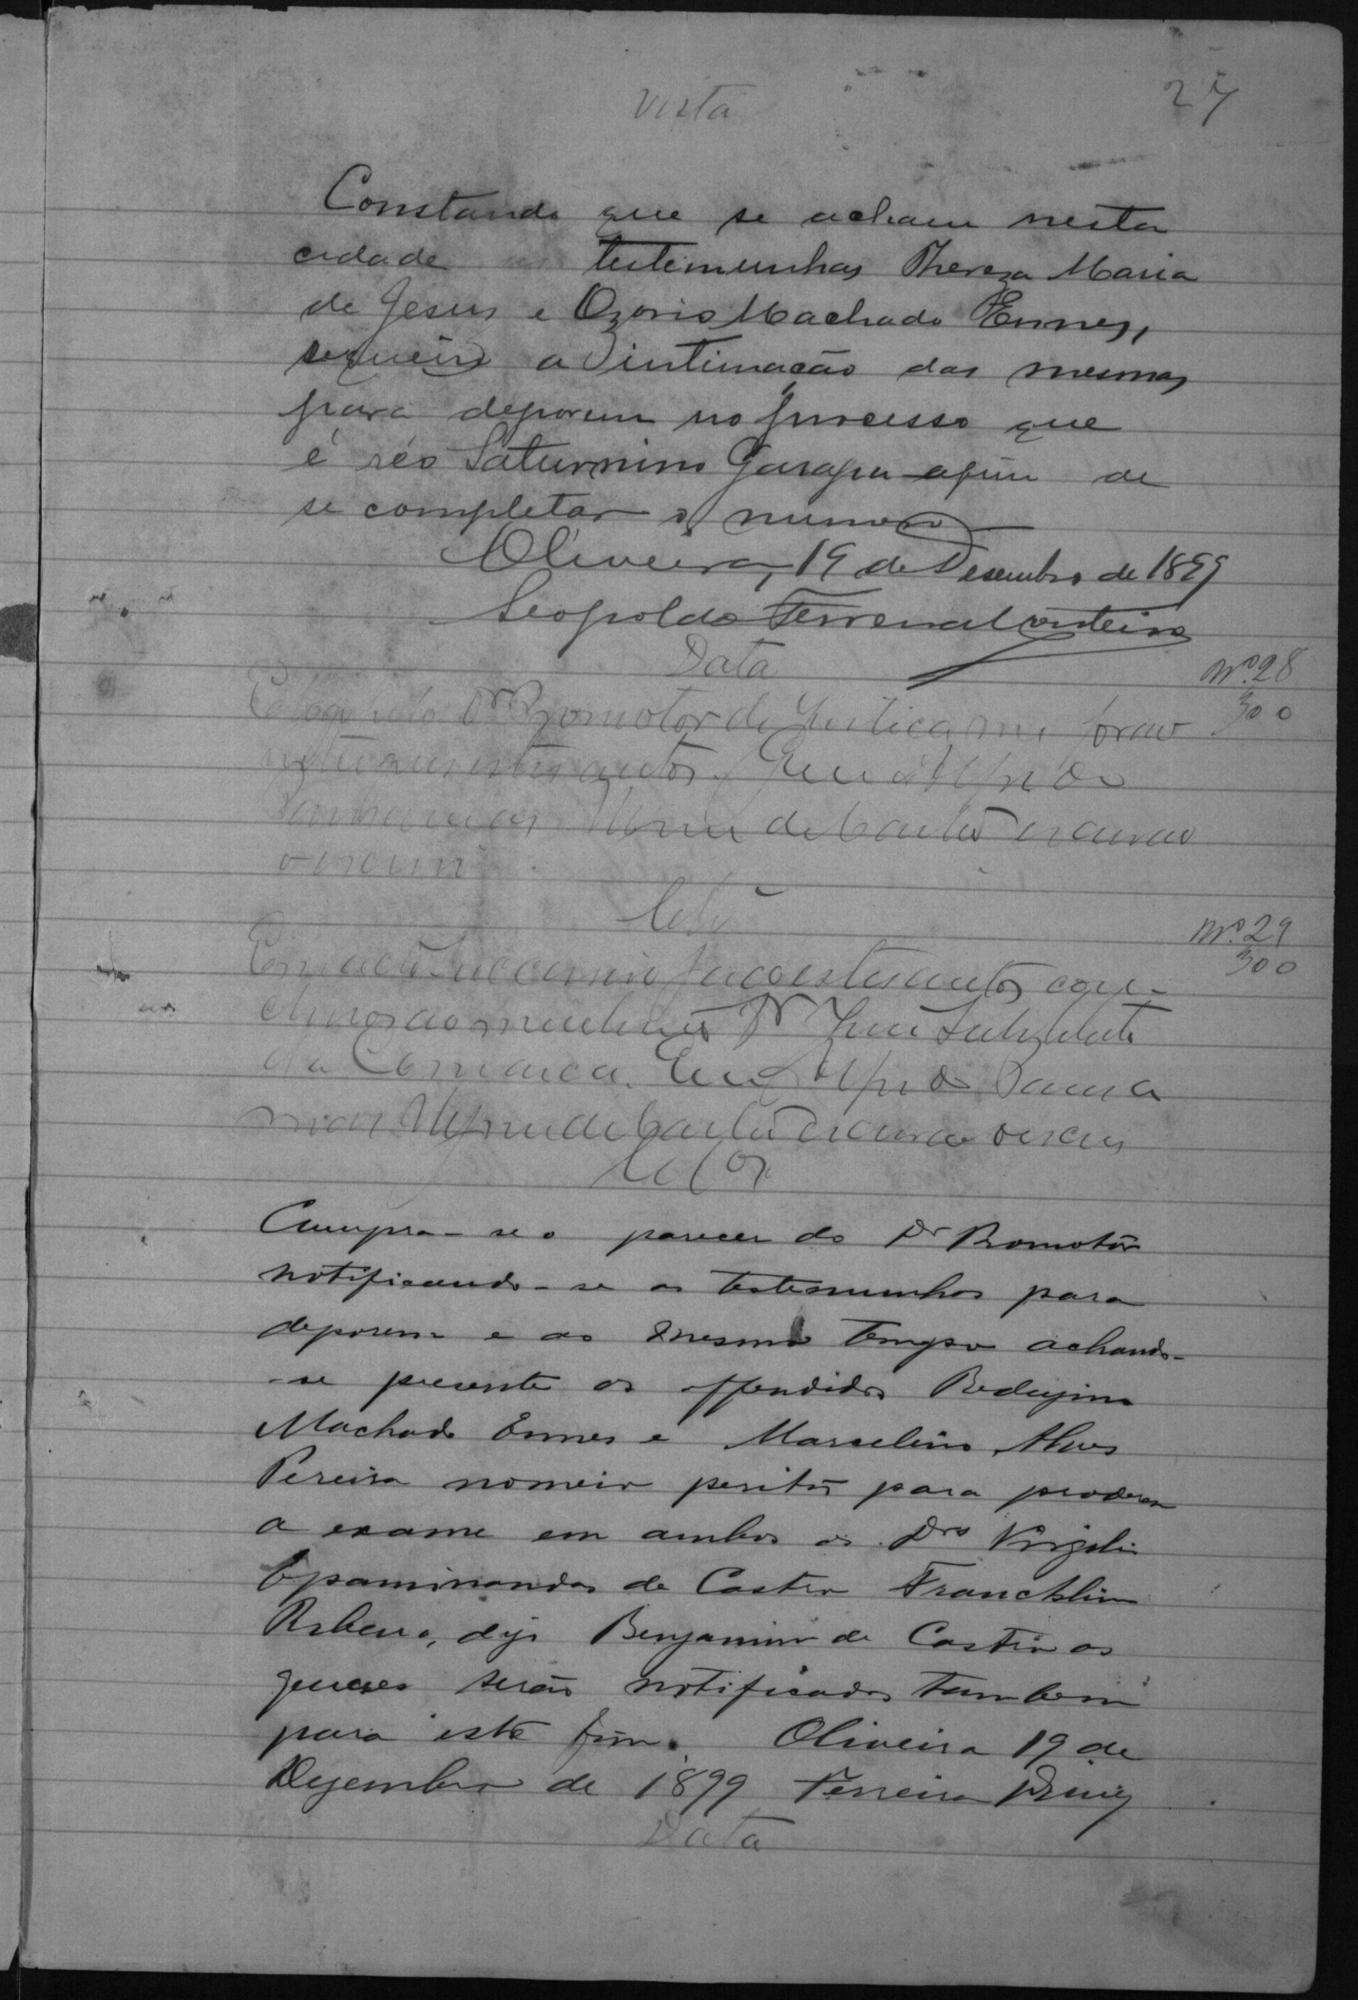 Vista
27
Constando que se acham nesta
cidade as testemunhas Thereza Maria
de Jesus e Ozorio Machado Ennes,
requeiro a intimação das mesmas
para deporem no processo que
é réo Saturnino Garapa afim de
se completar o numero
Oliveira, 19 de Desembro de 1899
Leopoldo Ferreira Monteiro
Data
Nº 28
300
E logo pelo Dr Promotor de Justiça me forao
estes autos. Eu
de Castro escrivao
o escrevi
Clsº
Nº 29
300
Em acto successivo faço estes autos con-
clusos ao Dr Juis Substituto
da Comarca. Eu
de Castro escrivao o escrevi
Clsos
Cumpra-se o parecer do Dr Promotôr
notificando-se as testemunhas para
deporem e ao mesmo tempo achando-
-se presente os offendidos
Machado Ennes e Marcelino Alves
Pereira nomeio peritos para procederem
a exame em ambos os Drs Virgilio
Epaminondas de Castro Francklim
Ribeiro, digo Benjamim de Castro os
quaes serão notificados tambem
para este fim. Oliveira 19 de
Dezembro de 1899 Ferreira Diniz
Data